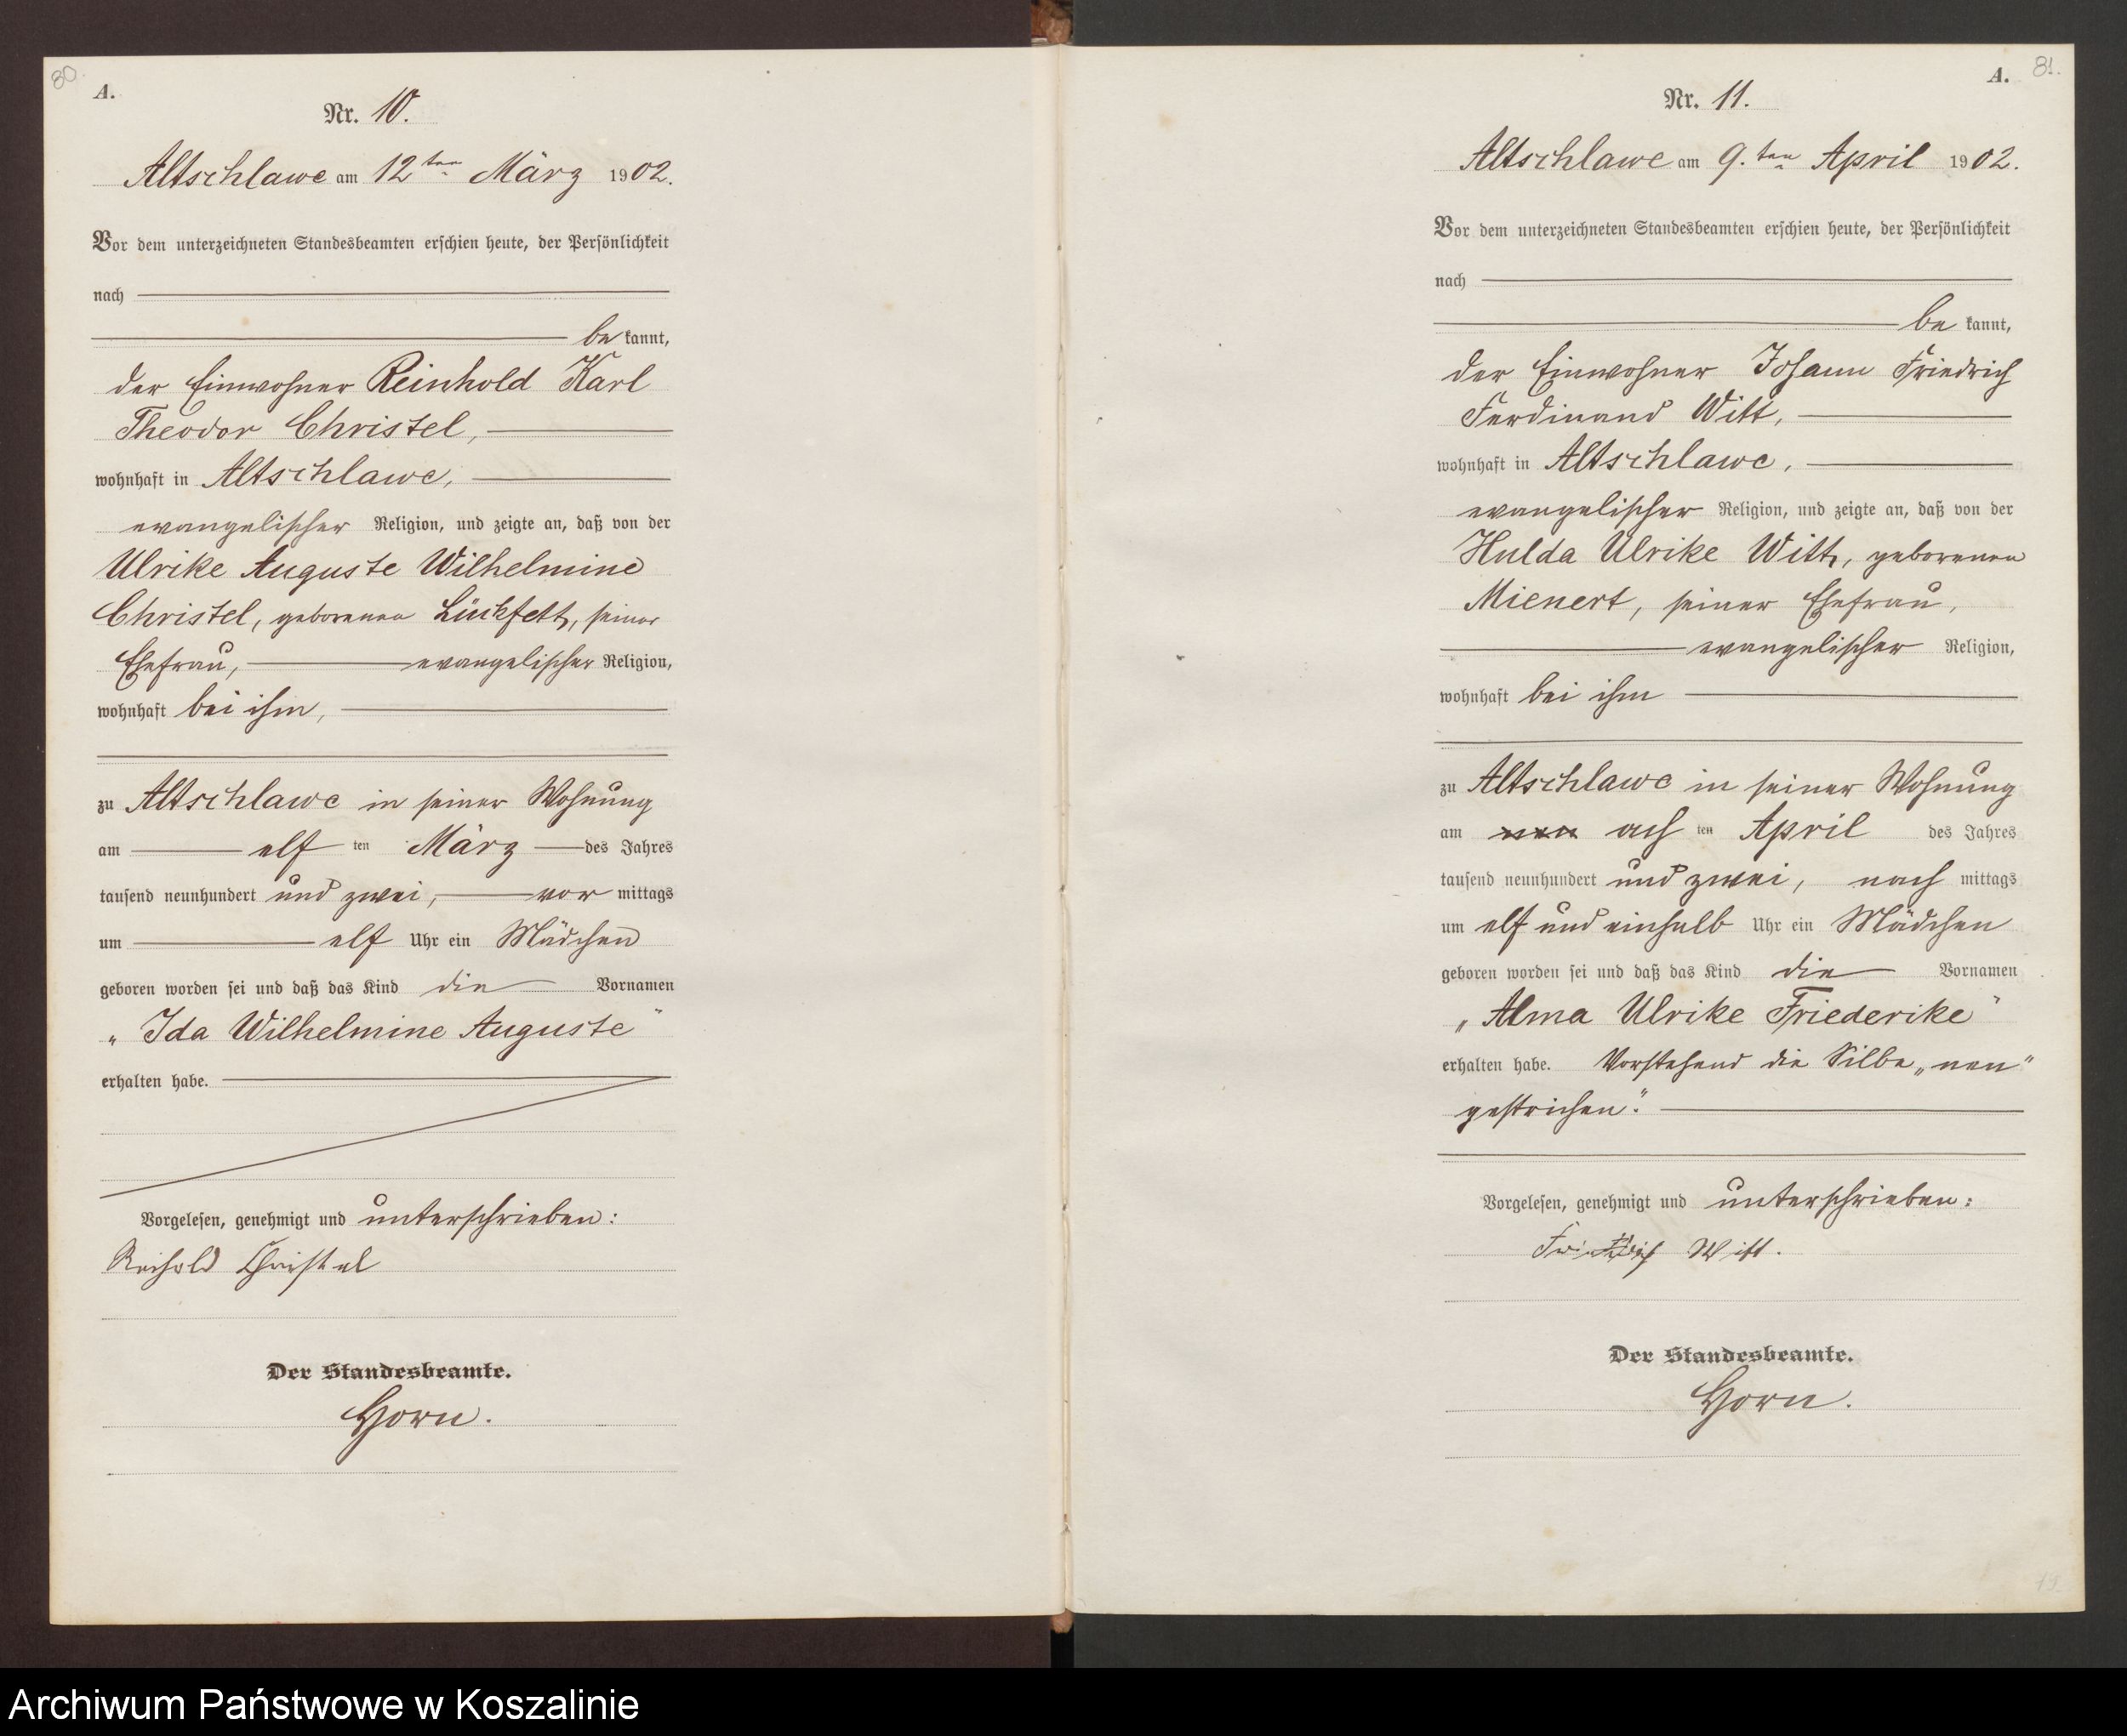 80.
A.
Nr. 10.
Altschlawe am 12ten März 1902.
Vor dem unterzeichneten Standesbeamten erschien heute, der Persönlichkeit
nach
be kannt,
der Einwohner Reinhold Karl
Theodor Christel,
wohnhaft in Altschlawe,
evangelischer Religion, und zeigte an, daß von der
Ulrike Auguste Wilhelmine
Christel, geborenen Lückfett, seiner
Ehefrau, evangelischer Religion,
wohnhaft bei ihm,
zu Altschlawe in seiner Wohnung
am elf ten März des Jahres
tausend neunhundert und zwei, vor mittags
um elf Uhr ein Mädchen
geboren worden sei und daß das Kind die Vornamen
„Ida Wilhelmine Auguste"
erhalten habe.
Vorgelesen, genehmigt und unterschrieben:
Reihold Christel
Der Standesbeamte.
Horn.
A. 81.
Nr. 11.
Altschlawe am 9.ten April 1902.
Vor dem unterzeichneten Standesbeamten erschien heute, der Persönlichkeit
nach
be kannt,
der Einwohner Johann Friedrich
Ferdinand Witt,
wohnhaft in Altschlawe,
evangelischer Religion, und zeigte an, daß von der
Hulda Ulrike Witt, geborenen
Mienert, seiner Ehefrau,
evangelischer Religion,
wohnhaft bei ihm
zu Altschlawe in seiner Wohnung
am nen ach ten April des Jahres
tausend neunhundert und zwei, nach mittags
um elf und einhalb Uhr ein Mädchen
geboren worden sei und daß das Kind die Vornamen
„Alma Ulrike Friederike"
erhalten habe. Vorstehend die Silbe „nen"
gestrichen.
Vorgelesen, genehmigt und unterschrieben:
Friedrich Witt.
Der Standesbeamte.
Horn.
Archiwum Państwowe w Koszalinie